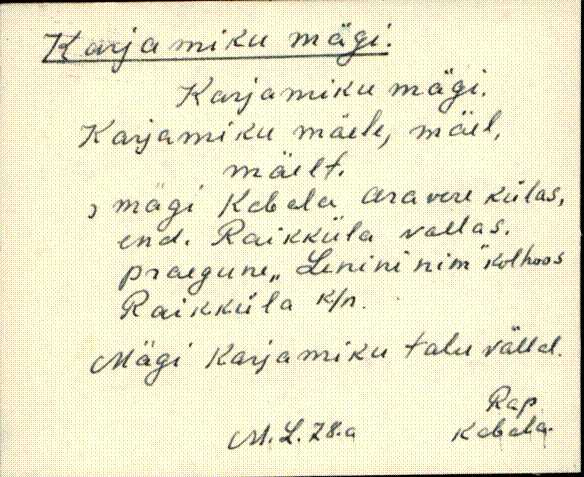 Karjamiku mägi.
Karjamiku mägi.
Karjamiku mäele, mäel,
mäelt.
, mägi Kabala Aravere külas,
end. Raikküla vallas.
praegune „Lenini nim" kolhoos
Raikküla k/n.
Mägi Karjamiku talu väljal.
M. L. 78.a
Rap
Kabala.